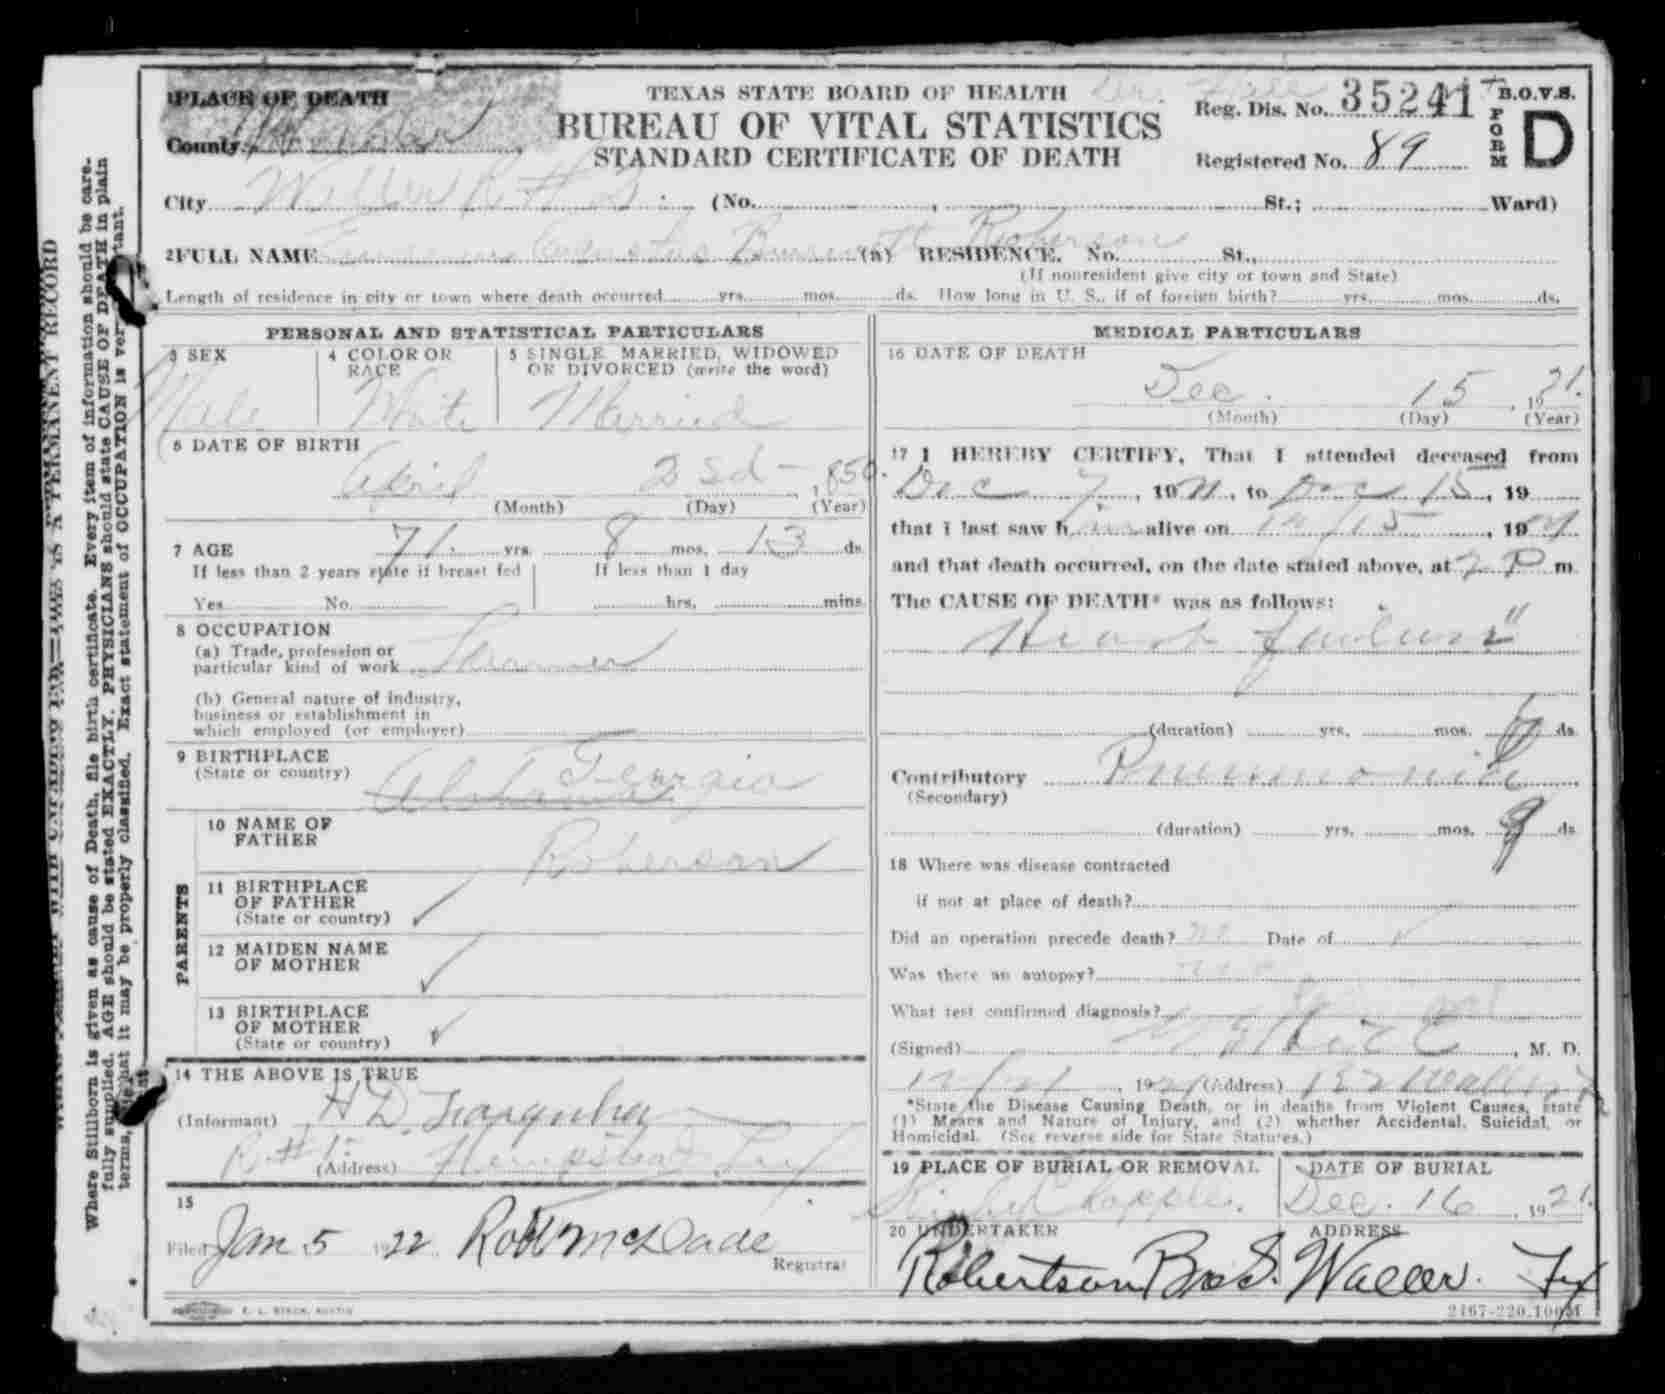 1PLACE OF DEATH
TEXAS STATE BOARD OF HEALTH
Reg. Dis. No. 35241
B.O.V.S.
FORM D
County
BUREAU OF VITAL STATISTICS
STANDARD CERTIFICATE OF DEATH
Registered No. 89
City Waller R # (No. , St.; Ward)
2FULL NAME Augustus Roberson (a) RESIDENCE. No. St.,
(If nonresident give city or town and State)
Length of residence in city or town where death occurred yrs. mos. ds. How long in U. S., if of foreign birth? yrs. mos. ds.
PERSONAL AND STATISTICAL PARTICULARS
3 SEX
Male
4 COLOR OR RACE
White
5 SINGLE, MARRIED, WIDOWED
OR DIVORCED (write the word)
Married
6 DATE OF BIRTH
April 2 , 1850.
(Month) (Day) (Year)
7 AGE 71. yrs. 8 mos. 13 ds.
If less than 2 years state if breast fed
If less than 1 day
Yes No. hrs. mins.
8 OCCUPATION
(a) Trade, profession or
particular kind of work Farmer
(b) General nature of industry,
business or establishment in
which employed (or employer)
9 BIRTHPLACE
(State or country) Alabama Georgia
PARENTS
10 NAME OF
FATHER Roberson
11 BIRTHPLACE
OF FATHER
(State or country) ✓
12 MAIDEN NAME
OF MOTHER ✓
13 BIRTHPLACE
OF MOTHER
(State or country) ✓
14 THE ABOVE IS TRUE
(Informant) H D. Farquhar
R #1. (Address) Hempstead Tex
15
Filed Jan 5 1922 Robt McDade
Registrar
E. L. STECK, AUSTIN
MEDICAL PARTICULARS
16 DATE OF DEATH
Dec. 15 , 1921.
(Month) (Day) (Year)
17 I HEREBY CERTIFY, That I attended deceased from
Dec 7 , 1921, to Dec 15, 19
that I last saw him alive on 12/15 , 1921
and that death occurred, on the date stated above, at 7 P m.
The CAUSE OF DEATH* was as follows:
Heart failure"
(duration) yrs. mos. ds.
Contributory Pneumonia
(Secondary)
(duration) yrs. mos. 9 ds.
18 Where was disease contracted
if not at place of death?
Did an operation precede death? no Date of ✓
Was there an autopsy? no
What test confirmed diagnosis?
(Signed) , M. D.
12/21 , 1921 (Address) Waller Tx
*State the Disease Causing Death, or in deaths from Violent Causes, state
(1) Means and Nature of Injury, and (2) whether Accidental, Suicidal, or
Homicidal. (See reverse side for State Statutes.)
19 PLACE OF BURIAL OR REMOVAL
DATE OF BURIAL
Dec. 16 , 1921.
20 UNDERTAKER
ADDRESS
Robertson Bros. Waller. Tex
2467-220-100M
Where Stillborn is given as cause of Death, file birth certificate. Every item of information should be care-
fully supplied. AGE should be stated EXACTLY. PHYSICIANS should state CAUSE OF DEATH in plain
terms, so that it may be properly classified. Exact statement of OCCUPATION is very important.